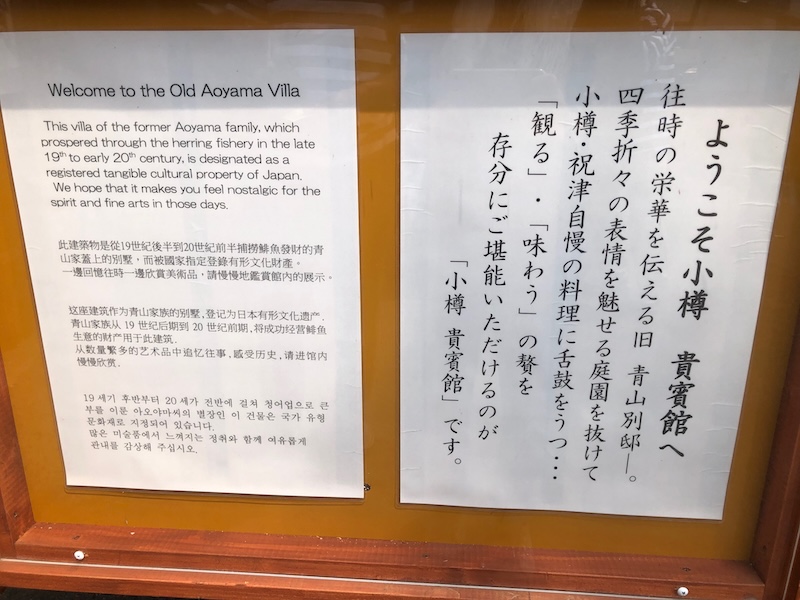 Welcome to the Old Aoyama Villa
This villa of the former Aoyama family, which
prospered through the herring fishery in the late
19th to early 20th century, is designated as a
registered tangible cultural property of Japan.
We hope that it makes you feel nostalgic for the
spirit and fine arts in those days.
此建築物是從19世紀後半到20世紀前半捕撈鯡魚發財的青
山家蓋上的別墅，而被國家指定登錄有形文化財產。
一邊回憶往時一邊欣賞美術品，請慢慢地鑑賞館內的展示。
这座建筑作为青山家族的别墅,登记为日本有形文化遗产.
青山家族从 19 世纪后期到 20 世纪前期,将成功经营鲱鱼
生意的财产用于此建筑.
从数量繁多的艺术品中追忆往事,感受历史,请进馆内
慢慢欣赏.
19 세기 후반부터 20 세가 전반에 걸쳐 청어업으로 큰
부를 이룬 아오야마씨의 별장인 이 건물은 국가 유형
문화재로 지정되어 있습니다.
많은 미술품에서 느껴지는 정취와 함께 여유롭게
관내를 감상해 주십시오.
ようこそ小樽 貴賓館へ
往時の栄華を伝える旧 青山別邸―。
四季折々の表情を魅せる庭園を抜けて
小樽・祝津自慢の料理に舌鼓をうつ・・・
「観る」・「味わう」の贅を
存分にご堪能いただけるのが
「小樽 貴賓館」です。